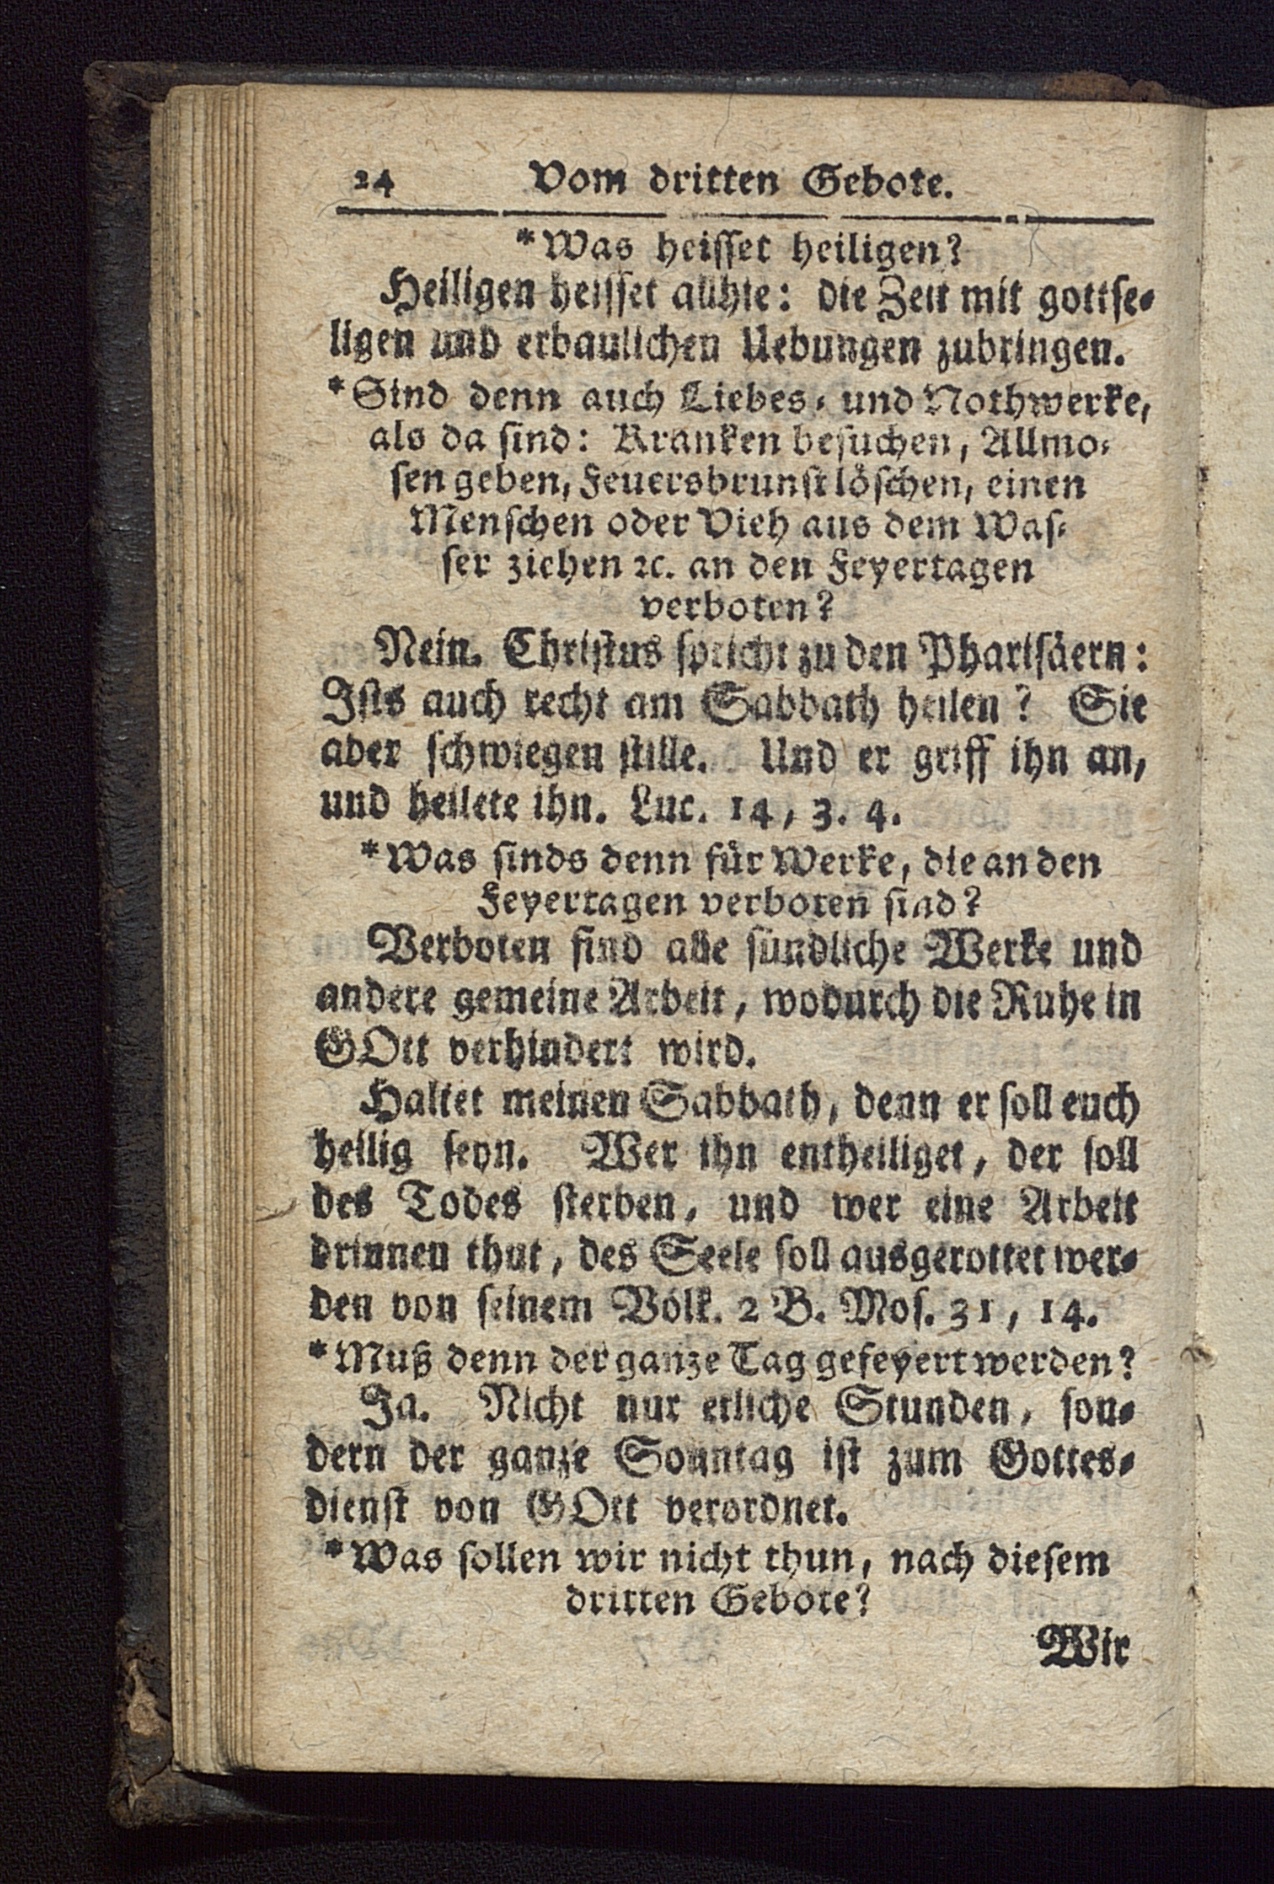 24 Vom dritten Gebote.
*Was heisset heiligen?
Heiligen heisset allhie: die Zeit mit gottse-
ligen und erbaulichen Uebungen zubringen.
*Sind denn auch Liebes- und Nothwerke,
als da sind: Kranken besuchen, Allmo-
sen geben, Feuersbrunst löschen, einen
Menschen oder Vieh aus dem Was-
ser ziehen ꝛc. an den Feyertagen
verboten?
Nein. Christus spricht zu den Pharisäern:
Ists auch recht am Sabbath heilen? Sie
aber schwiegen stille. Und er griff ihn an,
und heilete ihn. Luc. 14, 3. 4.
*Was sinds denn für Werke, die an den
Feyertagen verboten sind?
Verboten sind alle sündliche Werke und
andere gemeine Arbeit, wodurch die Ruhe in
GOtt verhindert wird.
Haltet meinen Sabbath, denn er soll euch
heilig seyn. Wer ihn entheiliget, der soll
des Todes sterben, und wer eine Arbeit
drinnen thut, des Seele soll ausgerottet wer-
den von seinem Volk. 2 B. Mos. 31, 14.
*Muß denn der ganze Tag gefeyert werden?
Ja. Nicht nur etliche Stunden, son-
dern der ganze Sonntag ist zum Gottes-
dienst von GOtt verordnet.
*Was sollen wir nicht thun, nach diesem
dritten Gebote?
Wir